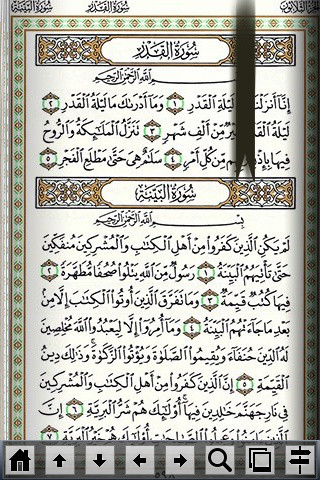 سُورَةُ البَيِّنَةِ سُورَةُ القَدْرِ الجُزْءُ الثَّلَاثُونَ
سُورَةُ القَدْرِ
بِسْمِ اللَّهِ الرَّحْمَٰنِ الرَّحِيمِ
إِنَّا أَنزَلْنَٰهُ لَيْلَةِ الْقَدْرِ ١ وَمَا أَدْرَىٰكَ مَا لَيْلَةُ الْقَدْرِ ٢
لَيْلَةُ الْقَدْرِ خَيْرٌ مِّنْ أَلْفِ شَهْرٍ ٣ تَنَزَّلُ الْمَلَٰٓئِكَةُ وَالرُّوحُ
فِيهَا بِإِذْنِ رَبِّهِم مِّن كُلِّ أَمْرٍ ٤ سَلَٰمٌ هِيَ حَتَّىٰ مَطْلَعِ الْفَجْرِ ٥
سُورَةُ البَيِّنَةِ
بِسْمِ اللَّهِ الرَّحْمَٰنِ الرَّحِيمِ
لَمْ يَكُنِ الَّذِينَ كَفَرُوا مِنْ أَهْلِ الْكِتَٰبِ وَالْمُشْرِكِينَ مُنفَكِّينَ
حَتَّىٰ تَأْتِيَهُمُ الْبَيِّنَةُ ١ رَسُولٌ مِّنَ اللَّهِ يَتْلُوا صُحُفًا مُّطَهَّرَةً ٢
فِيهَا كُتُبٌ قَيِّمَةٌ ٣ وَمَا تَفَرَّقَ الَّذِينَ أُوتُوا الْكِتَٰبَ إِلَّا مِنۢ
بَعْدِ مَا جَآءَتْهُمُ الْبَيِّنَةُ ٤ وَمَآ أُمِرُوٓا إِلَّا لِيَعْبُدُوا اللَّهَ مُخْلِصِينَ
لَهُ الدِّينَ حُنَفَآءَ وَيُقِيمُوا الصَّلَوٰةَ وَيُؤْتُوا الزَّكَوٰةَ ۚ وَذَٰلِكَ دِينُ
الْقَيِّمَةِ ٥ إِنَّ الَّذِينَ كَفَرُوا مِنْ أَهْلِ الْكِتَٰبِ وَالْمُشْرِكِينَ
فِي نَارِ جَهَنَّمَ خَٰلِدِينَ فِيهَآ ۚ أُولَٰٓئِكَ هُمْ شَرُّ الْبَرِيَّةِ ٦ إِنَّ
الَّذِينَ ءَامَنُوا وَعَمِلُوا الصَّٰلِحَٰتِ أُولَٰٓئِكَ هُمْ خَيْرُ الْبَرِيَّةِ ٧
٥٩٨